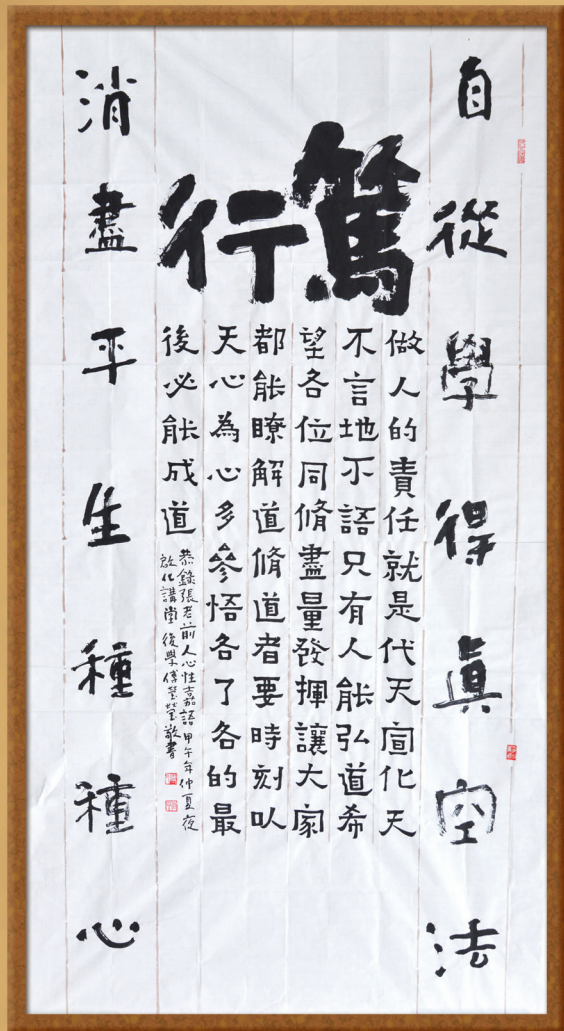 自從學得真空法
篤行
做人的責任就是代天宣化天
不言地不語只有人能弘道希
望各位同修盡量發揮讓大家
都能瞭解道修道者要時刻以
天心為心多參悟各了各的最
後必能成道
恭錄張老前人心性嘉語甲午年仲夏夜
啟化講堂後學傅瑩瑩敬書
消盡平生種種心